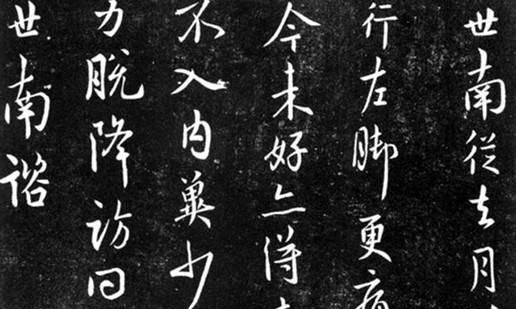 世南從去月
行左脚更痛
今未好亦得
不入内冀少
力脱降訪问
世南諮